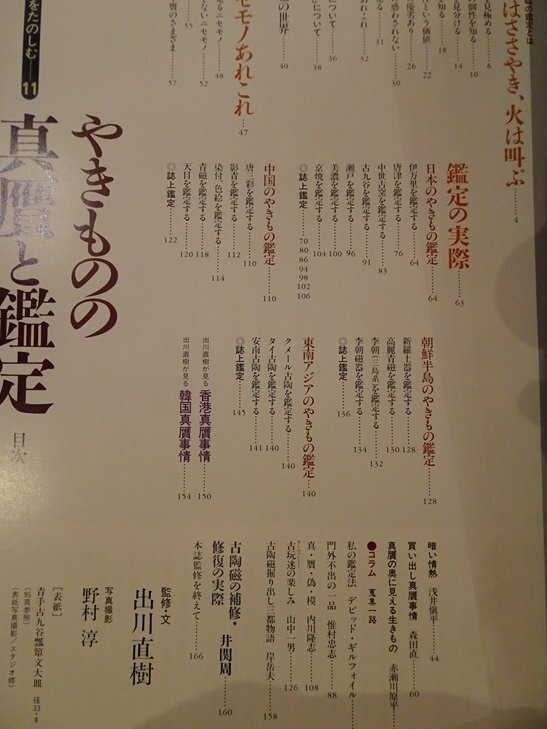 土はささやき、火は叫ぶ……4
を見極める……6
個性を知る……10
を見分ける……14
知る……18
という価値……22
優劣あり……26
惑わされない……30
きる……31
あれこれ……32
ついて……36
について……38
の世界……40
ニセモノあれこれ……47
るニセモノ……48
ないニセモノ……52
……55
贋のさまざま……57
をたのしむ——11
やきものの
真贋と鑑定
目次
鑑定の実際……63
日本のやきもの鑑定……64
伊万里を鑑定する……64
唐津を鑑定する……76
中世古窯を鑑定する……83
古九谷を鑑定する……91
瀬戸を鑑定する……96
美濃を鑑定する……100
京焼を鑑定する……104
◎誌上鑑定……70 80 86 94 98 102 106
中国のやきもの鑑定……110
唐三彩を鑑定する……110
影青を鑑定する……112
染付、色絵を鑑定する……114
青磁を鑑定する……118
天目を鑑定する……120
◎誌上鑑定……122
朝鮮半島のやきもの鑑定……128
新羅土器を鑑定する……128
高麗青磁を鑑定する……130
李朝(三島系)を鑑定する……132
李朝磁器を鑑定する……134
◎誌上鑑定……136
東南アジアのやきもの鑑定……140
クメール古陶を鑑定する……140
タイ古陶を鑑定する……140
安南古陶を鑑定する……141
◎誌上鑑定……145
出川直樹が見る 香港真贋事情……150
出川直樹が見る 韓国真贋事情……154
暗い情熱 浅井愼平……44
買い出し真贋事情 森田直……60
真贋の奥に見える生きもの 赤瀬川原平
●コラム 蒐集一路
私の鑑定法 デビッド・ギルフォイル
門外不出の一品 惟村忠志……88
真・贋・偽・模 内川隆志……108
古玩迷の楽しみ 山中一男……126
古陶磁掘り出し三都物語 岸岳夫……158
古陶磁の補修・
修復の実際 井関周……160
本誌監修を終えて……166
監修・文
出川直樹
写真撮影
野村 淳
[表紙]
青手古九谷瓢箪文大皿 径33・8
[95頁参照]
(表紙写真撮影/スタジオ修)